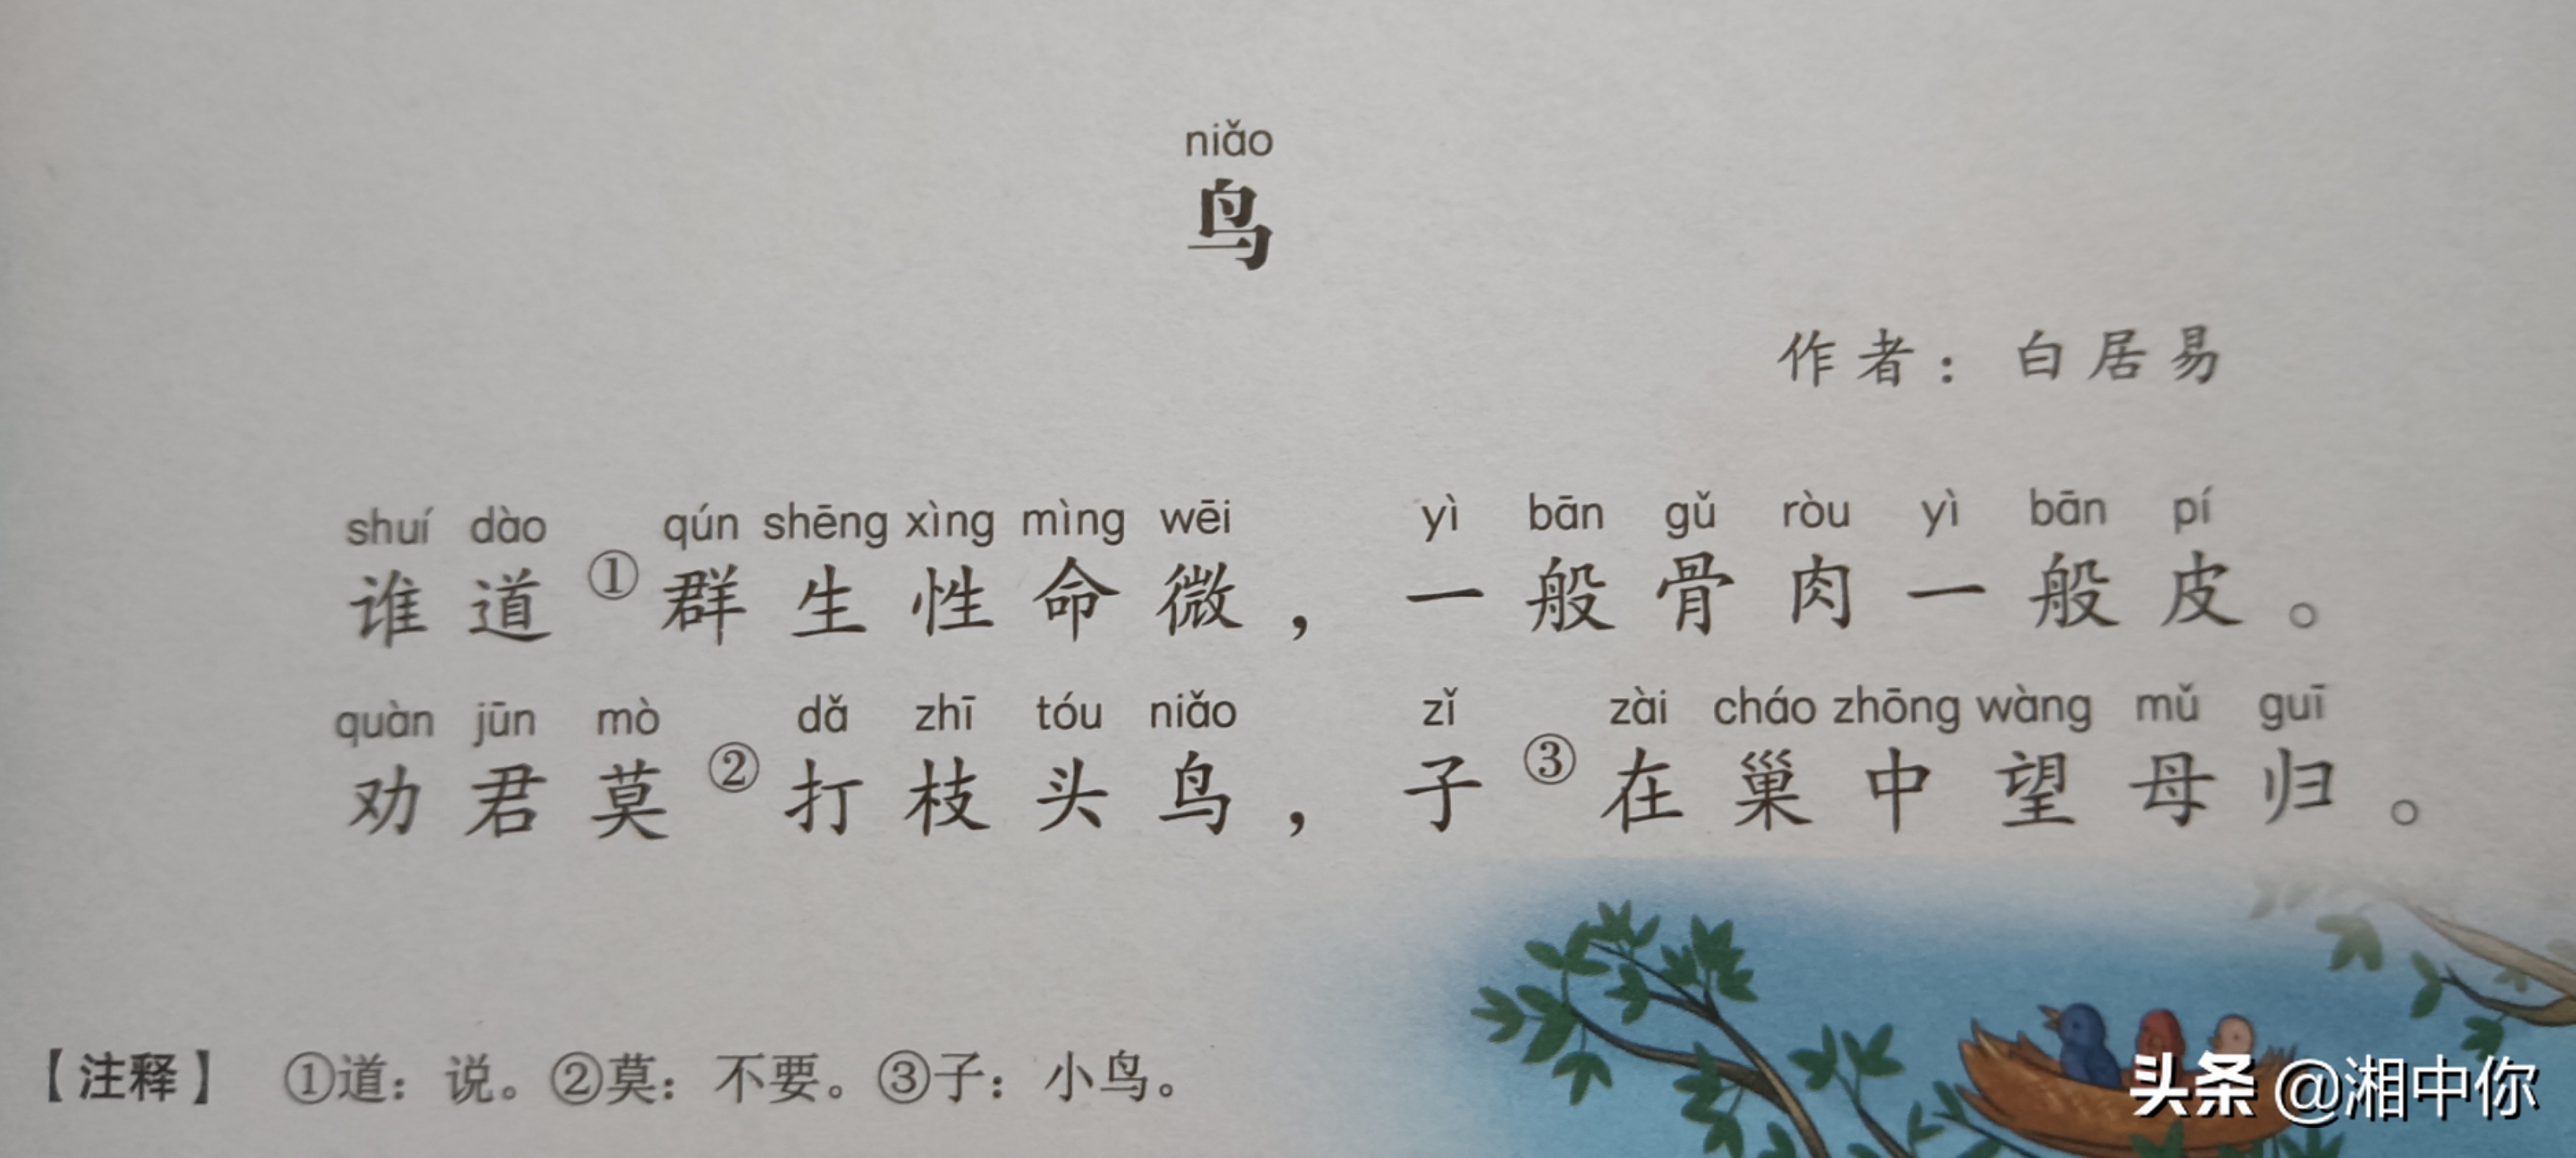 niǎo
鸟
作者：白居易
shuí dào qún shēng xìng mìng wēi yì bān gǔ ròu yì bān pí
谁道①群生性命微，一般骨肉一般皮。
quàn jūn mò dǎ zhī tóu niǎo zǐ zài cháo zhōng wàng mǔ guī
劝君莫②打枝头鸟，子③在巢中望母归。
【注释】 ①道：说。②莫：不要。③子：小鸟。
头条 @湘中你